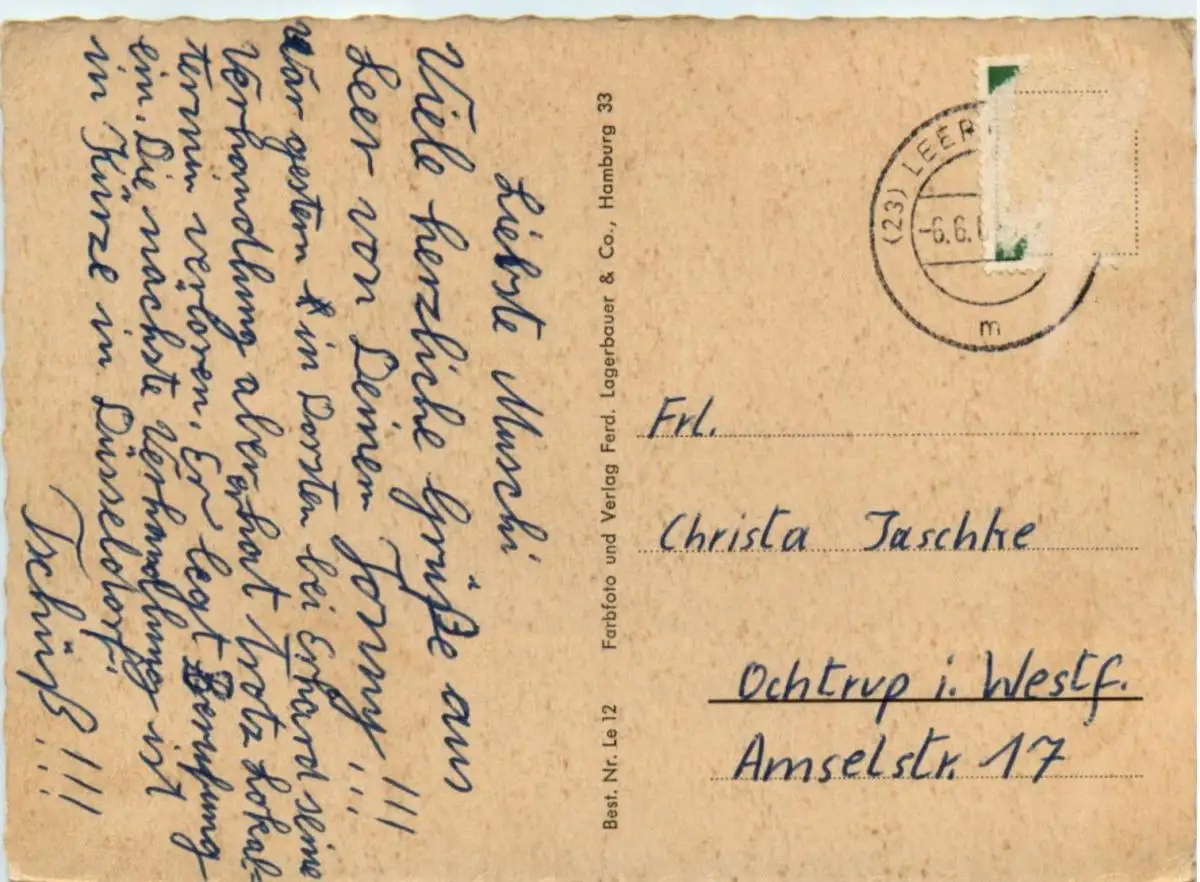 Liebste Muschi
Viele herzliche Grüße aus
Leer von Deinem Jonny!!!
War gestern in Dorsten bei Erhard seine
Verhandlung aber er hat trotz Lokal-
termin verloren. Er legt Berufung
ein. Die nächste Verhandlung ist
in Kürze in Düsseldorf!
Tschüß!!!
Best. Nr. Le 12 Farbfoto und Verlag Ferd. Lagerbauer & Co., Hamburg 33
(23) LEER
-6.6.6
m
Frl.
Christa Jaschke
Ochtrup i. Westf.
Amselstr. 17